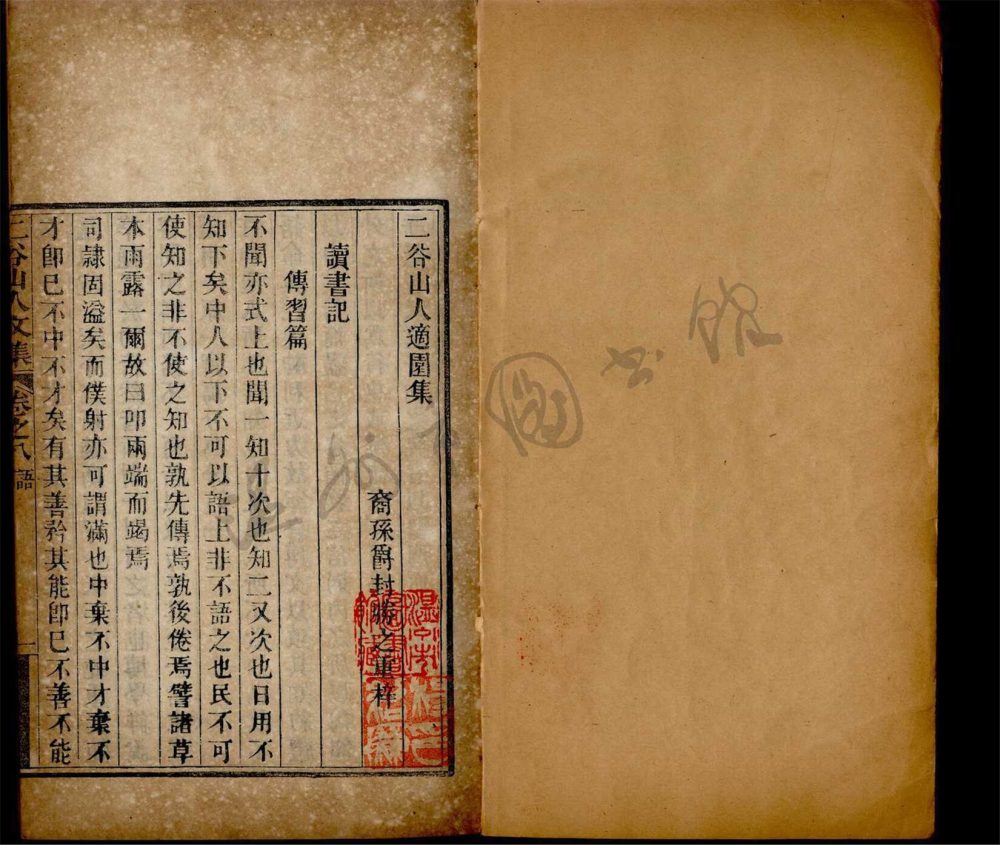 二谷山人適園集
裔孫爵封勝之重梓
讀書記
傳習篇
不聞亦式上也聞一知十次也知二又次也日用不
知下矣中人以下不可以語上非不語之也民不可
使知之非不使之知也孰先傳焉孰後倦焉譬諸草
本雨露一爾故曰叩兩端而竭焉
司隸固溢矣而僕射亦可謂滿也中棄不中才棄不
才卽已不中不才矣有其善矜其能卽已不善不能
二谷山人文集 卷之八 語 一
圖書館